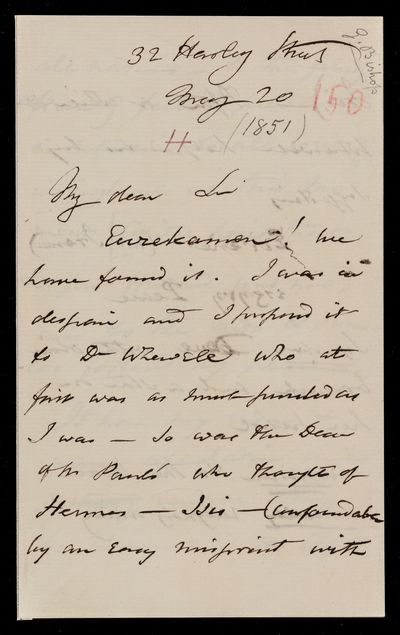 32 Harley Street
G. Bishop
May 20
150
(1851)
H
My dear Sir
Eurekamen! we
have found it. I was in
despair and I proposed it
to Dr Whewell who at
first was as much puzzled as
I was — so was the Dean
of St Paul's who thought of
Hermes — Isis — (confoundable
by an easy misprint with